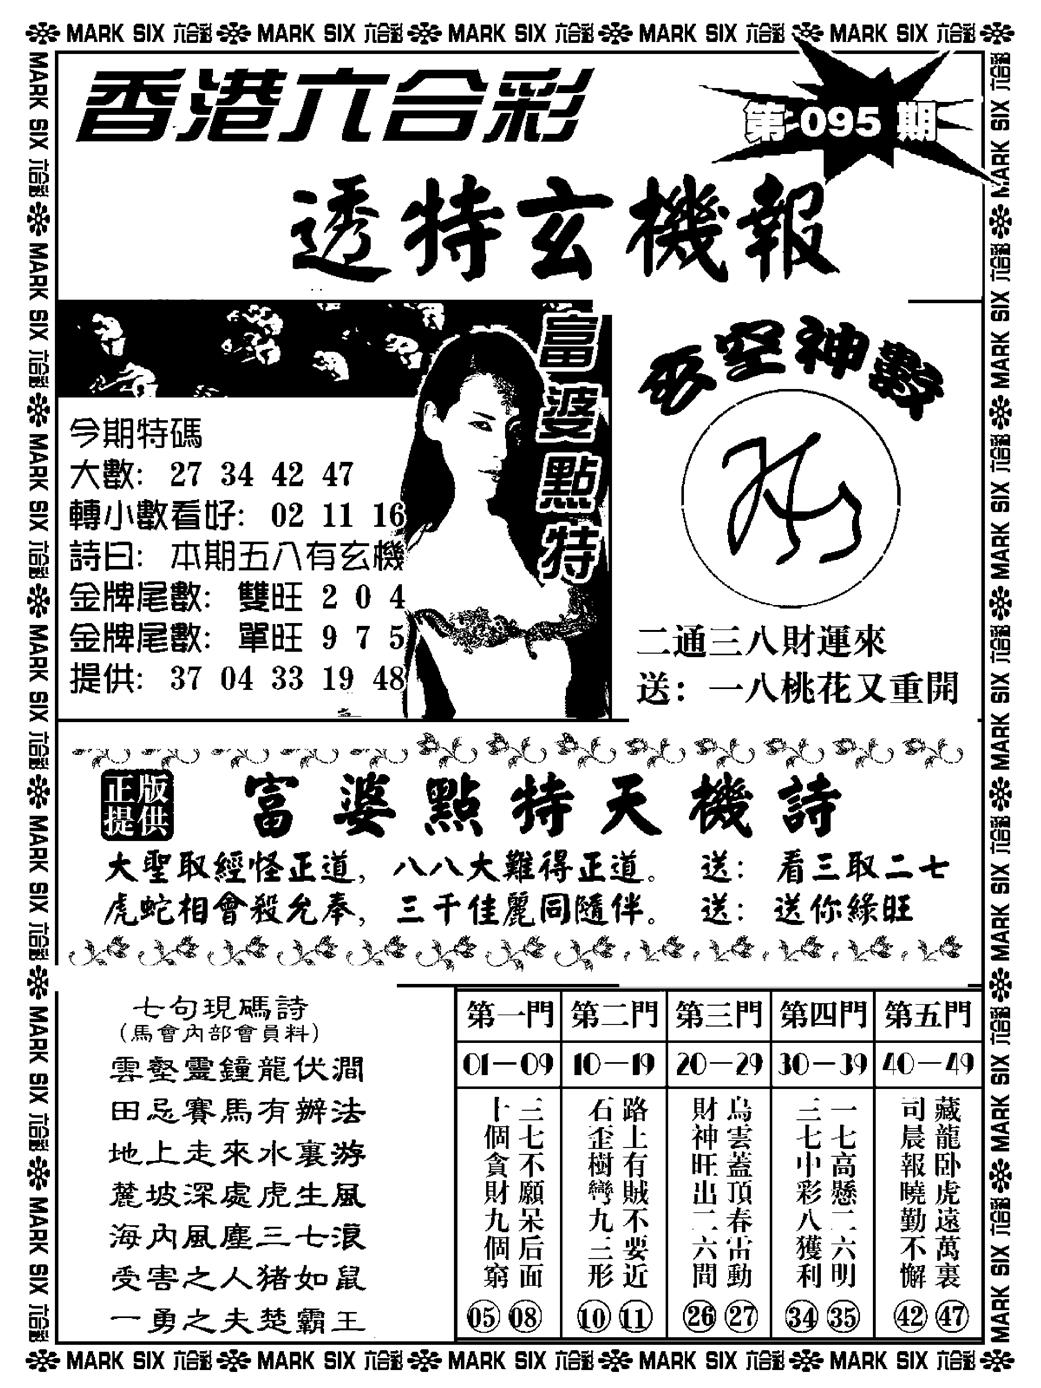 MARK SIX 六合彩 MARK SIX 六合彩 MARK SIX 六合彩 MARK SIX 六合彩 MARK SIX 六合彩
香港六合彩
第:095期
透特玄機報
富婆點特
今期特碼
大數: 27 34 42 47
轉小數看好: 02 11 16
詩曰: 本期五八有玄機
金牌尾數: 雙旺 2 0 4
金牌尾數: 單旺 9 7 5
提供: 37 04 33 19 48
玄空神數
二通三八財運來
送: 一八桃花又重開
正版提供
富婆點特天機詩
大聖取經怪正道, 八八大難得正道。 送: 看三取二七
虎蛇相會殺允奉, 三千佳麗同隨伴。 送: 送你綠旺
七句現碼詩
(馬會內部會員料)
雲壑靈鐘龍伏澗
田忌賽馬有辦法
地上走來水裏游
麓坡深處虎生風
海內風塵三七浪
受害之人猪如鼠
一勇之夫楚霸王
第一門 第二門 第三門 第四門 第五門
01—09 10—19 20—29 30—39 40—49
三七不願呆后面
十個貪財九個窮
05 08
路上有賊不要近
石歪樹彎九三形
10 11
烏雲蓋頂春雷動
財神旺出二六間
26 27
一七高懸二六明
三七中彩八獲利
34 35
藏龍卧虎遠萬裏
司晨報曉勤不懈
42 47
MARK SIX 六合彩 MARK SIX 六合彩 MARK SIX 六合彩 MARK SIX 六合彩 MARK SIX 六合彩